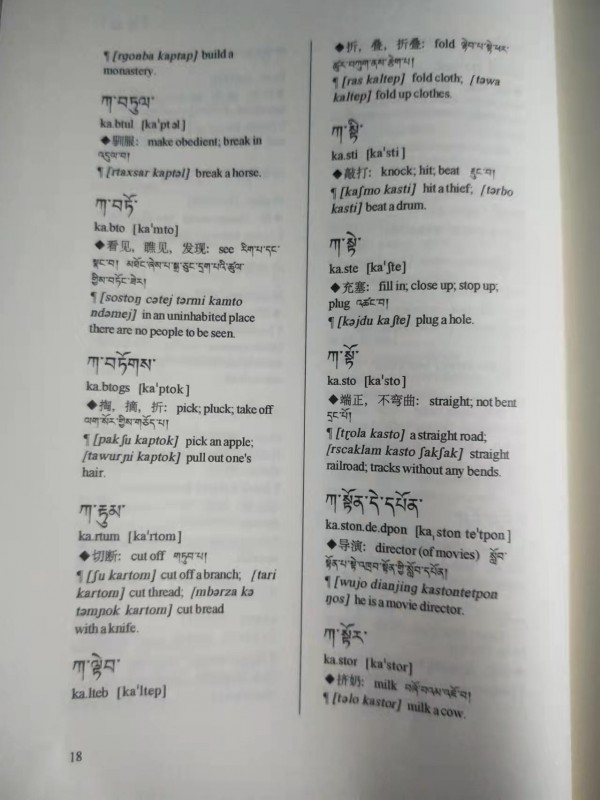 ¶ [rgonba kaptap] build a
monastery.
ཀ་བཏུལ་
ka.btul [kaˈptəl]
◆驯服: make obedient; break in
འདུལ་བ།
¶ [rtaxsar kaptəl] break a horse.
ཀ་བཏོ་
ka.bto [kaˈmto]
◆看见, 瞧见, 发现: see རིག་པ་དང་
སྣང་བ། མཐོང་ཞེས་པ་སྒྲ་ཅུང་དྲག་པའི་ཚུལ་
གྱིས་བཏོང་ཟེར།
¶ [sostoŋ cətej tərmi kamto
ndəmej] in an uninhabited place
there are no people to be seen.
ཀ་བཏོགས་
ka.btogs [kaˈptok]
◆掏, 摘, 折: pick; pluck; take off
ལག་སོར་གྱིས་གཅོད་པ།
¶ [pakʃu kaptok] pick an apple;
[tawurɲi kaptok] pull out one's
hair.
ཀ་རྟུམ་
ka.rtum [kaˈrtom]
◆切断: cut off གཏུབ་པ།
¶ [ʃu kartom] cut off a branch; [tari
kartom] cut thread; [mbərza kə
təmɲok kartom] cut bread
with a knife.
ཀ་ལྟེབ་
ka.lteb [kaˈltep]
18
◆折, 叠, 折叠: fold ལྟེབ་པ་སྟེ་ཕར་
ཚུར་བཀུག་ནས་རྩེག་པ།
¶ [ras kaltep] fold cloth; [təwa
kaltep] fold up clothes.
ཀ་སྟི་
ka.sti [kaˈsti]
◆敲打: knock; hit; beat རྡུང་བ།
¶ [kaʃmo kasti] hit a thief; [tərbo
kasti] beat a drum.
ཀ་སྟེ་
ka.ste [kaˈʃte]
◆充塞: fill in; close up; stop up;
plug འཚང་བ།
¶ [kəjdu kaʃte] plug a hole.
ཀ་སྟོ་
ka.sto [kaˈsto]
◆端正, 不弯曲: straight; not bent
དྲང་པོ།
¶ [tṛola kasto] a straight road;
[rscaklam kasto ʃakʃak] straight
railroad; tracks without any bends.
ཀ་སྟོན་དེ་དཔོན་
ka.ston.de.dpon [kaˌston teˈtpon]
◆导演: director (of movies) སློབ་
སྟོན་པ་སྟེ་འཁྲབ་སྟོན་གྱི་སློབ་དཔོན།
¶ [wujo dianjing kastontetpon
ŋos] he is a movie director.
ཀ་སྟོར་
ka.stor [kaˈstor]
◆挤奶: milk བཞོ་བའམ་འཇོ་བ།
¶ [təlo kastor] milk a cow.